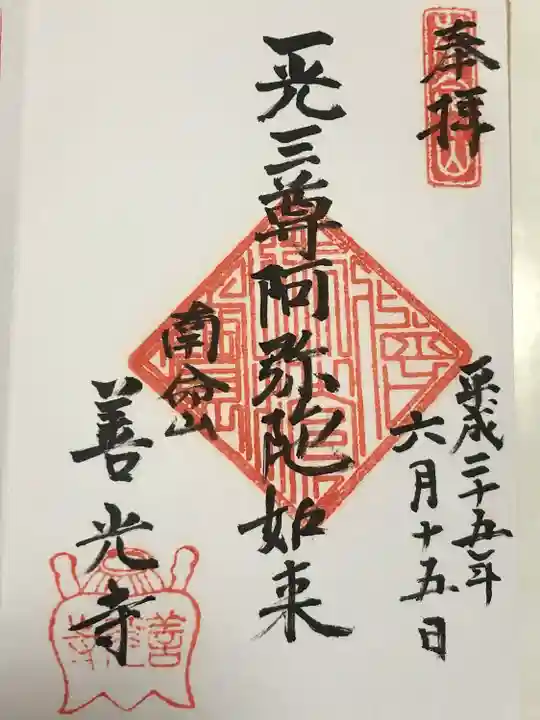 奉拝
平成二十五年
六月十五日
一光三尊阿弥陀如来
南命山
善光寺
善光寺